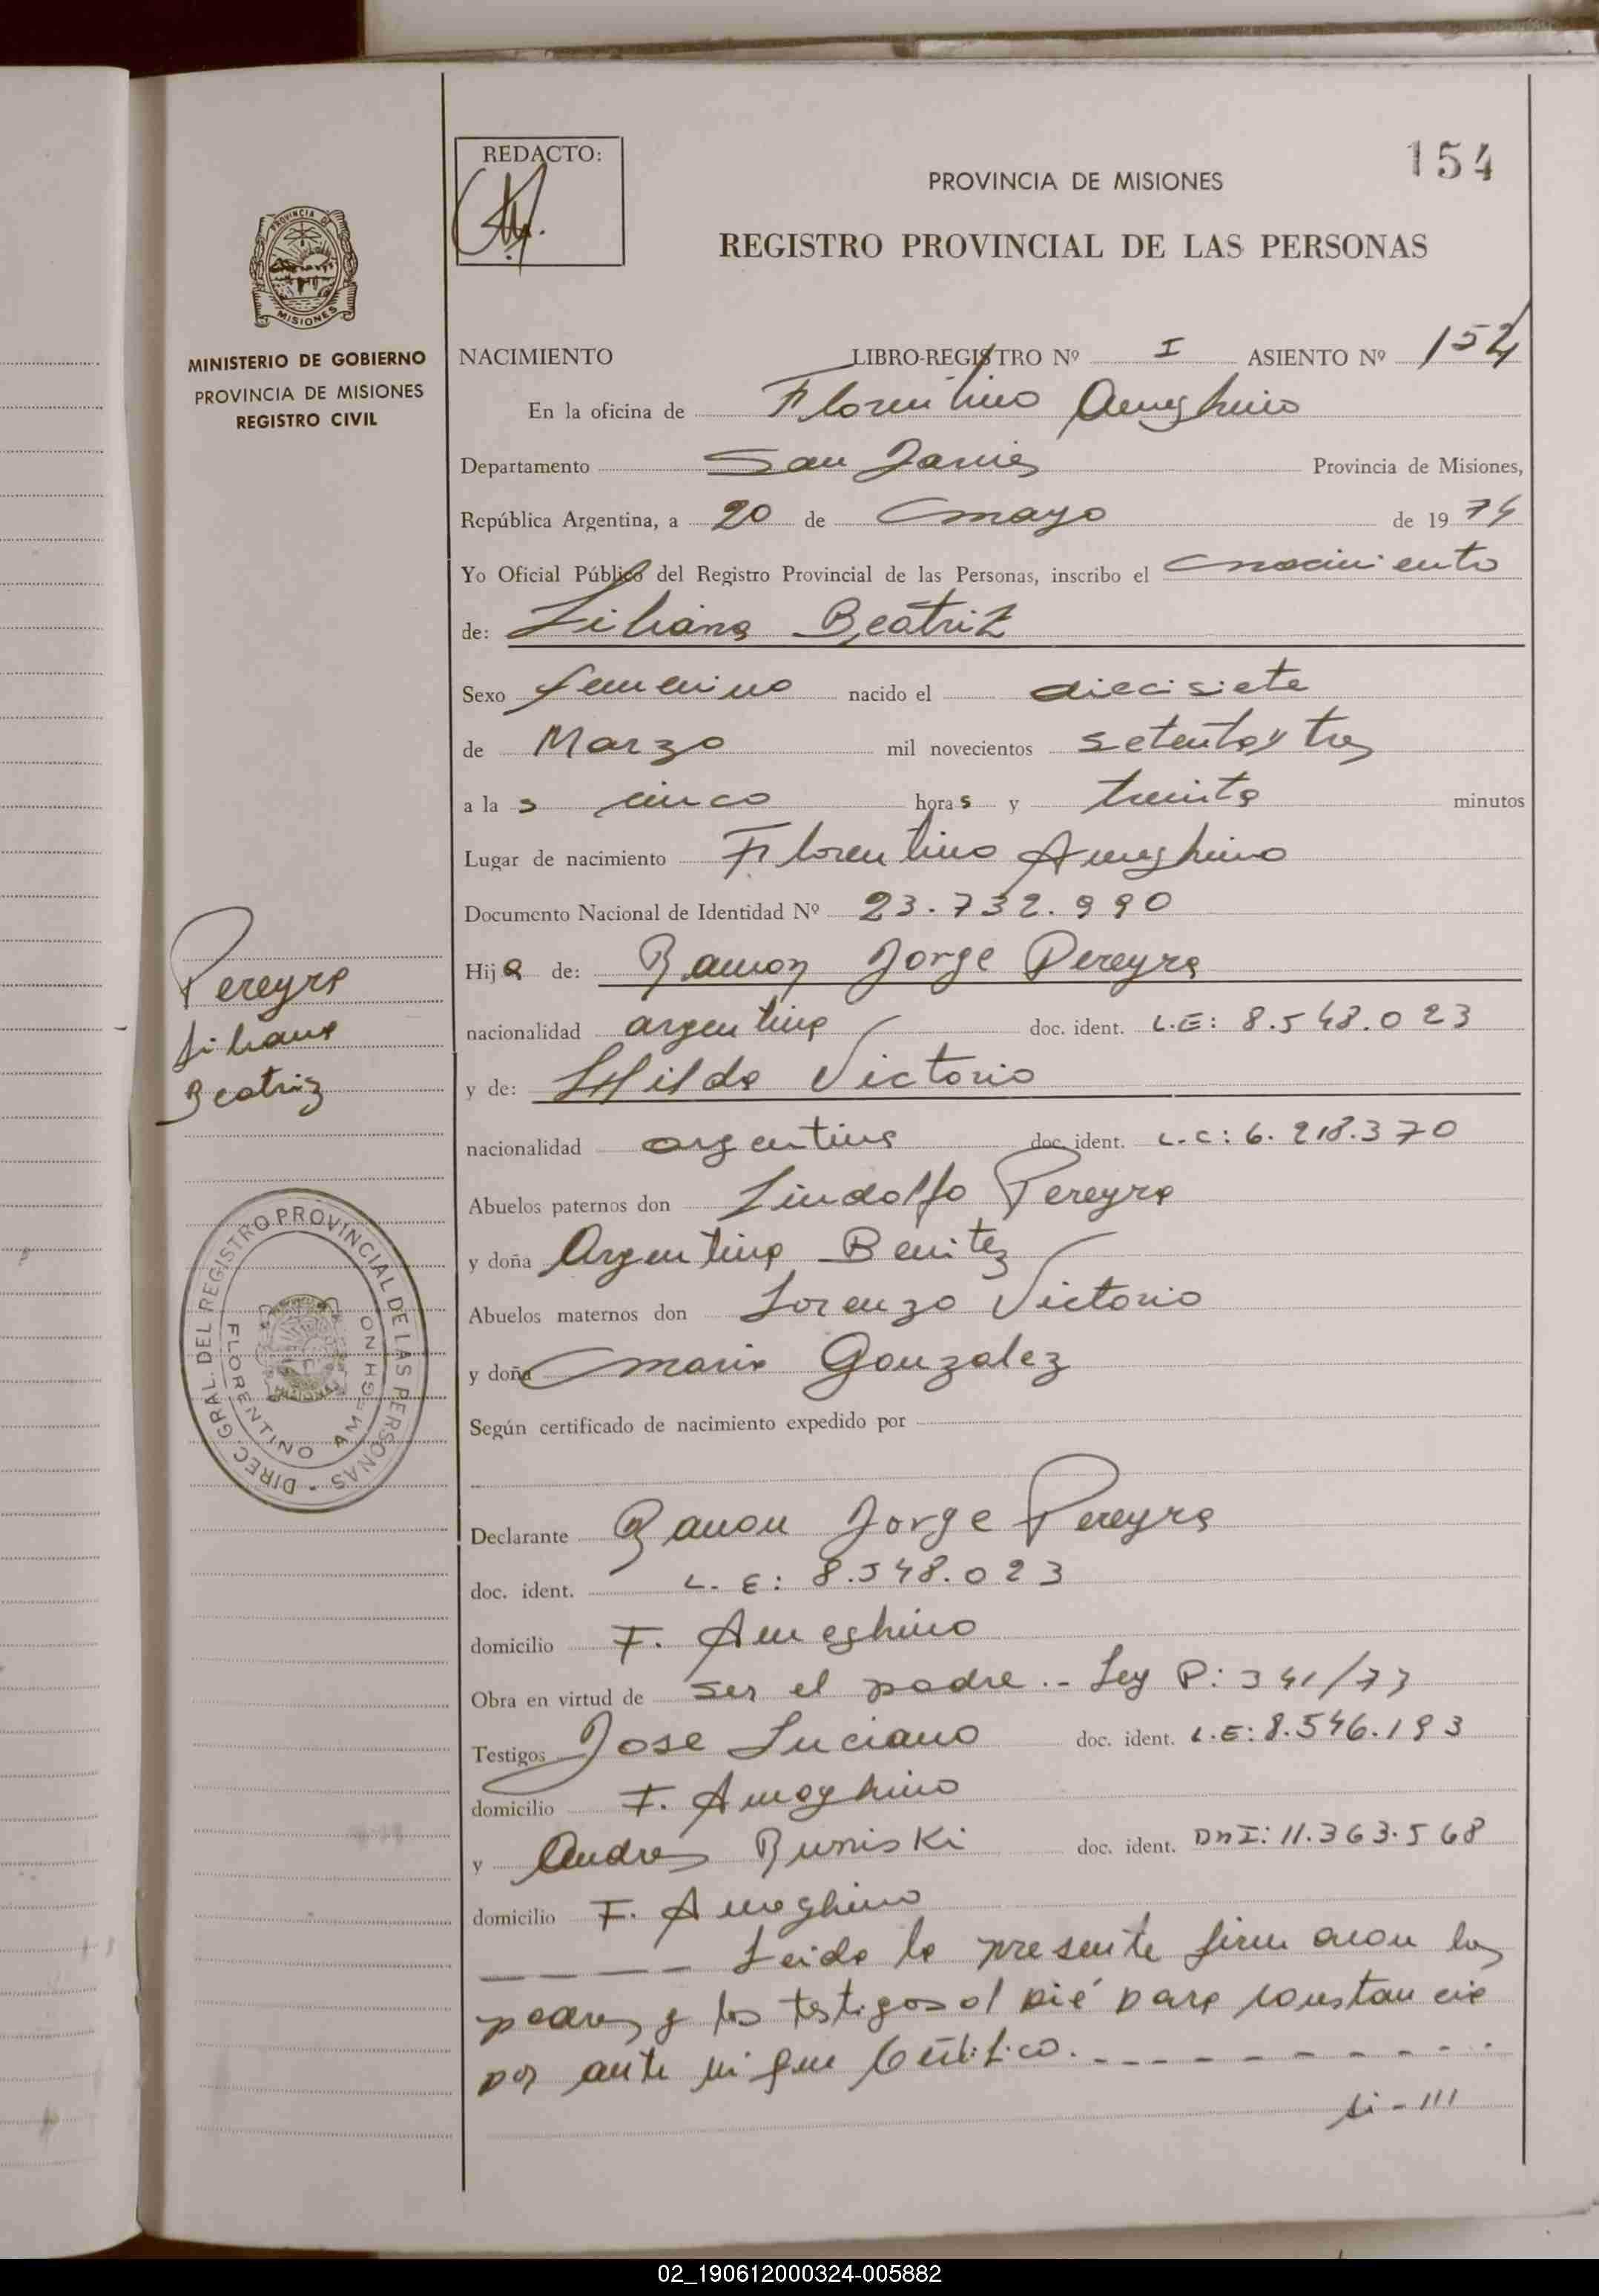 154
REDACTO:
PROVINCIA DE MISIONES
REGISTRO PROVINCIAL DE LAS PERSONAS
PROVINCIA DE MISIONES
MINISTERIO DE GOBIERNO
PROVINCIA DE MISIONES
REGISTRO CIVIL
NACIMIENTO LIBRO-REGISTRO Nº I ASIENTO Nº 154
En la oficina de Florentino Ameghino
Departamento San Javier Provincia de Misiones,
República Argentina, a 20 de mayo de 1974
Yo Oficial Público del Registro Provincial de las Personas, inscribo el nacimiento
de: Liliana Beatriz
Sexo femenino nacido el diecisiete
de Marzo mil novecientos setenta y tres
a la s cinco hora s y treinta minutos
Lugar de nacimiento Florentino Ameghino
Documento Nacional de Identidad Nº 23.732.990
Hij a de: Ramon Jorge Pereyra
nacionalidad argentina doc. ident. L.E: 8.548.023
y de: Hilda Victorio
nacionalidad argentina doc. ident. L.C: 6.218.370
Abuelos paternos don Lindolfo Pereyra
y doña Argentina Benitez
Abuelos maternos don Lorenzo Victorio
y doña maria Gonzalez
Según certificado de nacimiento expedido por
Declarante Ramon Jorge Pereyra
doc. ident. L.E: 8.548.023
domicilio F. Ameghino
Obra en virtud de ser el padre.- Ley P: 341/73
Testigos Jose Luciano doc. ident. L.E: 8.546.193
domicilio F. Ameghino
y Andres doc. ident. DNI: 11.363.568
domicilio F. Ameghino
Leida la presente firmaron los
padres y los testigos al pié para constancia
por ante mi que Certifico.
Pereyra
Liliana
Beatriz
DIREC. GRAL. DEL REGISTRO PROVINCIAL DE LAS PERSONAS
FLORENTINO AMEGHINO
02_190612000324-005882